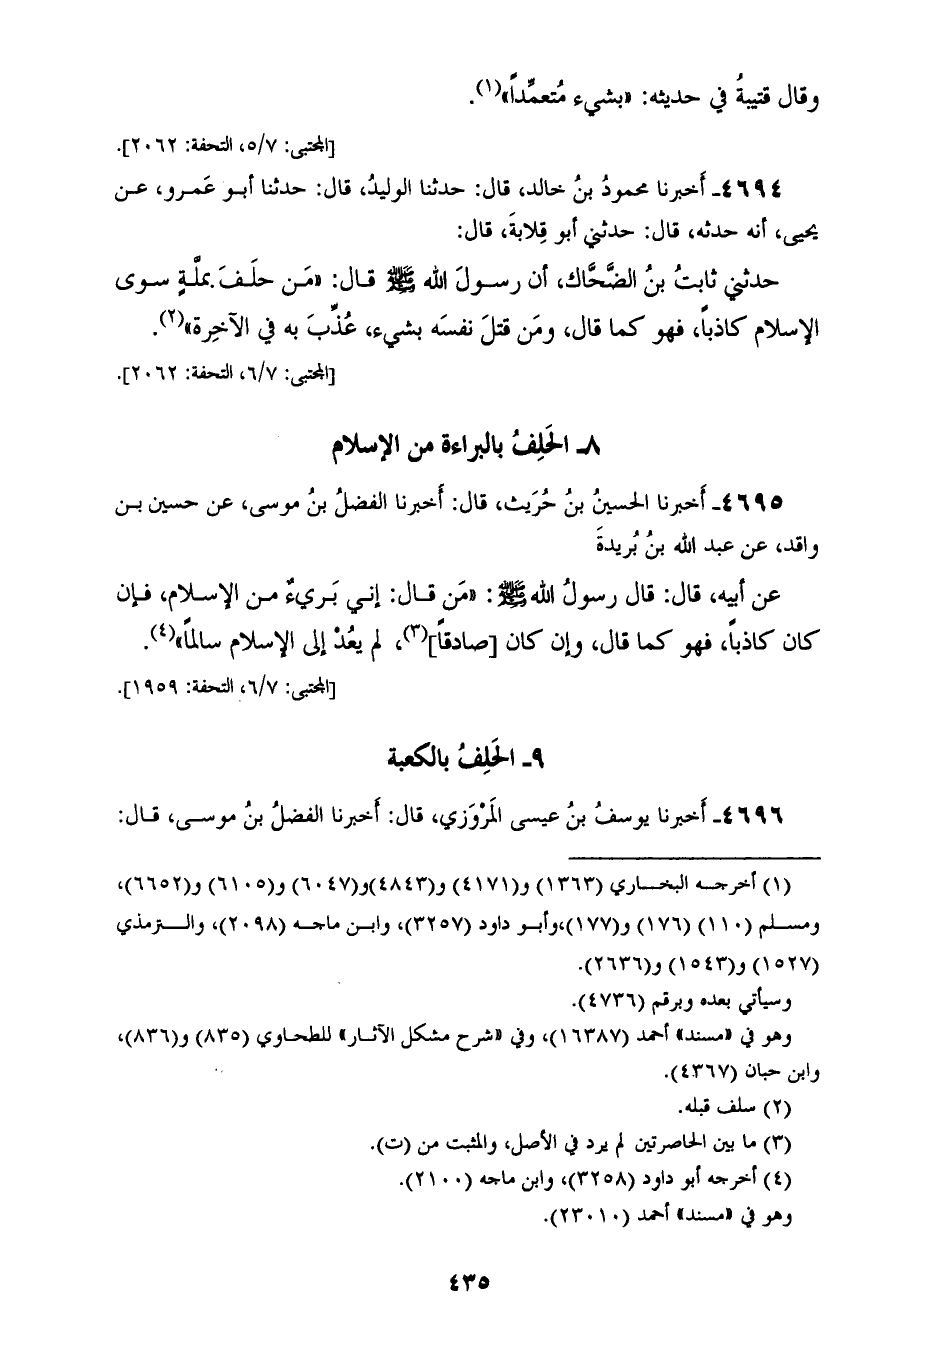 وقال قتيبةُ في حديثه: «بشيء مُتعمِّداً»(١).
[المجتبى: ٥/٧، التحفة: ٢٠٦٢].
٤٦٩٤ـ أَخبرنا محمودُ بنُ خالد، قال: حدثنا الوليدُ، قال: حدثنا أبو عَمرو، عن
يحيى، أنه حدثه، قال: حدثني أبو قِلابةَ، قال:
حدثني ثابتُ بنُ الضَّحَّاك، أن رسولَ الله ﷺ قال: «مَن حلَفَ بملَّةٍ سوى
الإسلام كاذباً، فهو كما قال، ومَن قتلَ نفسَه بشيء، عُذِّبَ به في الآخِرة»(٢).
[المجتبى: ٦/٧، التحفة: ٢٠٦٢].
٨ـ الحَلِفُ بالبراءة من الإسلام
٤٦٩٥ـ أَخبرنا الحسينُ بنُ حُرَيث، قال: أَخبرنا الفضلُ بنُ موسى، عن حسين بن
واقد، عن عبد الله بنُ بُريدةَ
عن أبيه، قال: قال رسولُ الله ﷺ: «مَن قال: إني بَريءٌ من الإسلام، فإن
كان كاذباً، فهو كما قال، وإن كان [صادقاً](٣)، لم يعُدْ إلى الإسلام سالماً»(٤).
[المجتبى: ٦/٧، التحفة: ١٩٥٩].
٩ـ الحَلِفُ بالكعبة
٤٦٩٦ـ أَخبرنا يوسفُ بنُ عيسى المَرْوَزي، قال: أَخبرنا الفضلُ بنُ موسى، قال:
(١) أخرجه البخاري (١٣٦٣) و(٤١٧١) و(٤٨٤٣)و(٦٠٤٧) و(٦١٠٥) و(٦٦٥٢)،
ومسلم (١١٠) (١٧٦) و(١٧٧)،وأبو داود (٣٢٥٧)، وابن ماجه (٢٠٩٨)، والترمذي
(١٥٢٧) و(١٥٤٣) و(٢٦٣٦).
وسيأتي بعده وبرقم (٤٧٣٦).
وهو في «مسند» أحمد (١٦٣٨٧)، وفي «شرح مشكل الآثار» للطحاوي (٨٣٥) و(٨٣٦)،
وابن حبان (٤٣٦٧).
(٢) سلف قبله.
(٣) ما بين الحاصرتين لم يرد في الأصل، والمثبت من (ت).
(٤) أخرجه أبو داود (٣٢٥٨)، وابن ماجه (٢١٠٠).
وهو في «مسند» أحمد (٢٣٠١٠).
٤٣٥